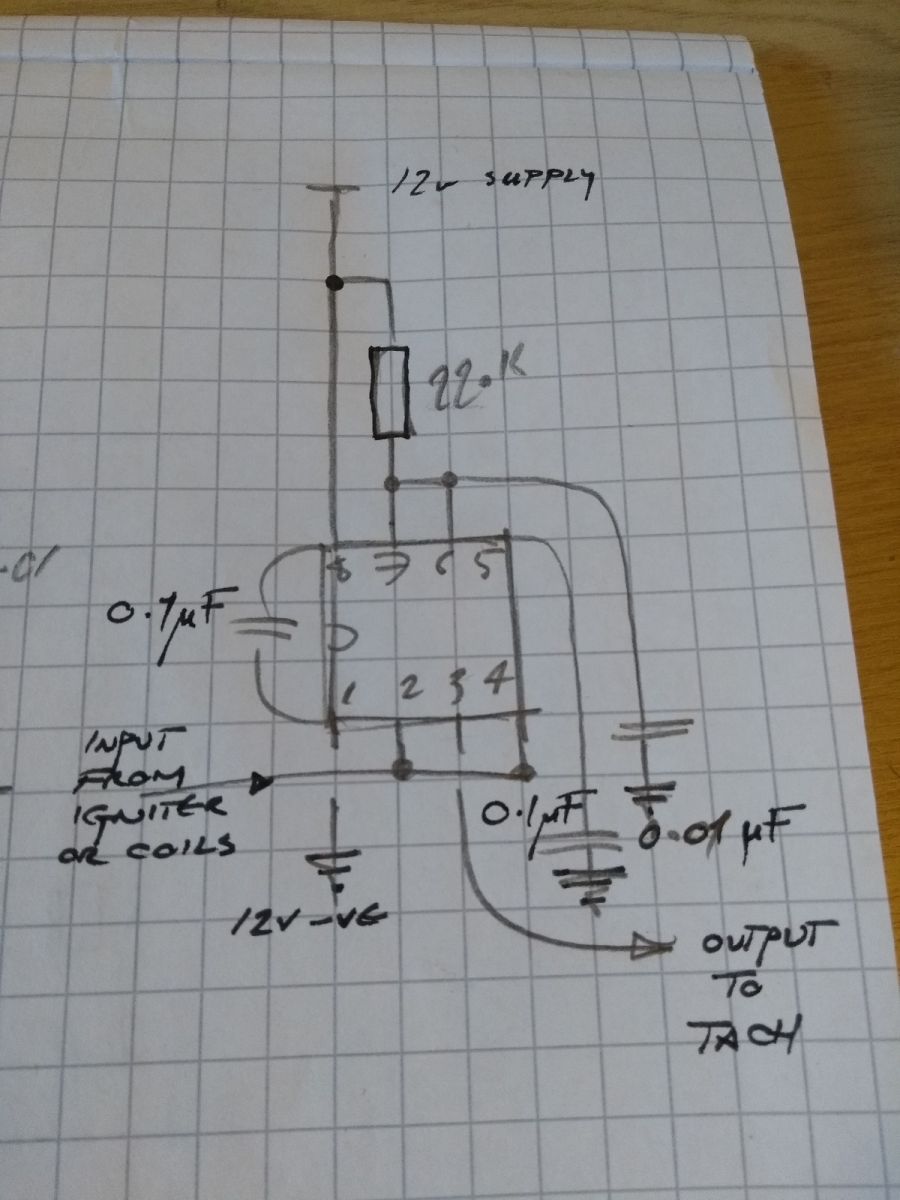 12v SUPPLY
22.K
8 7 6 5
0.1µF
1 2 3 4
INPUT
FROM
IGNITER
OR COILS
0.1µF
0.01 µF
12V -VE
OUTPUT
TO
TACH